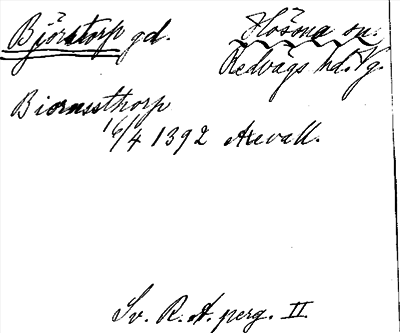 Björstorp gd. Hössna sn.
Redvägs hd. Vg.
Biornssthorp
16/4 1392 Axevall.
Sv. R. A. perg. II